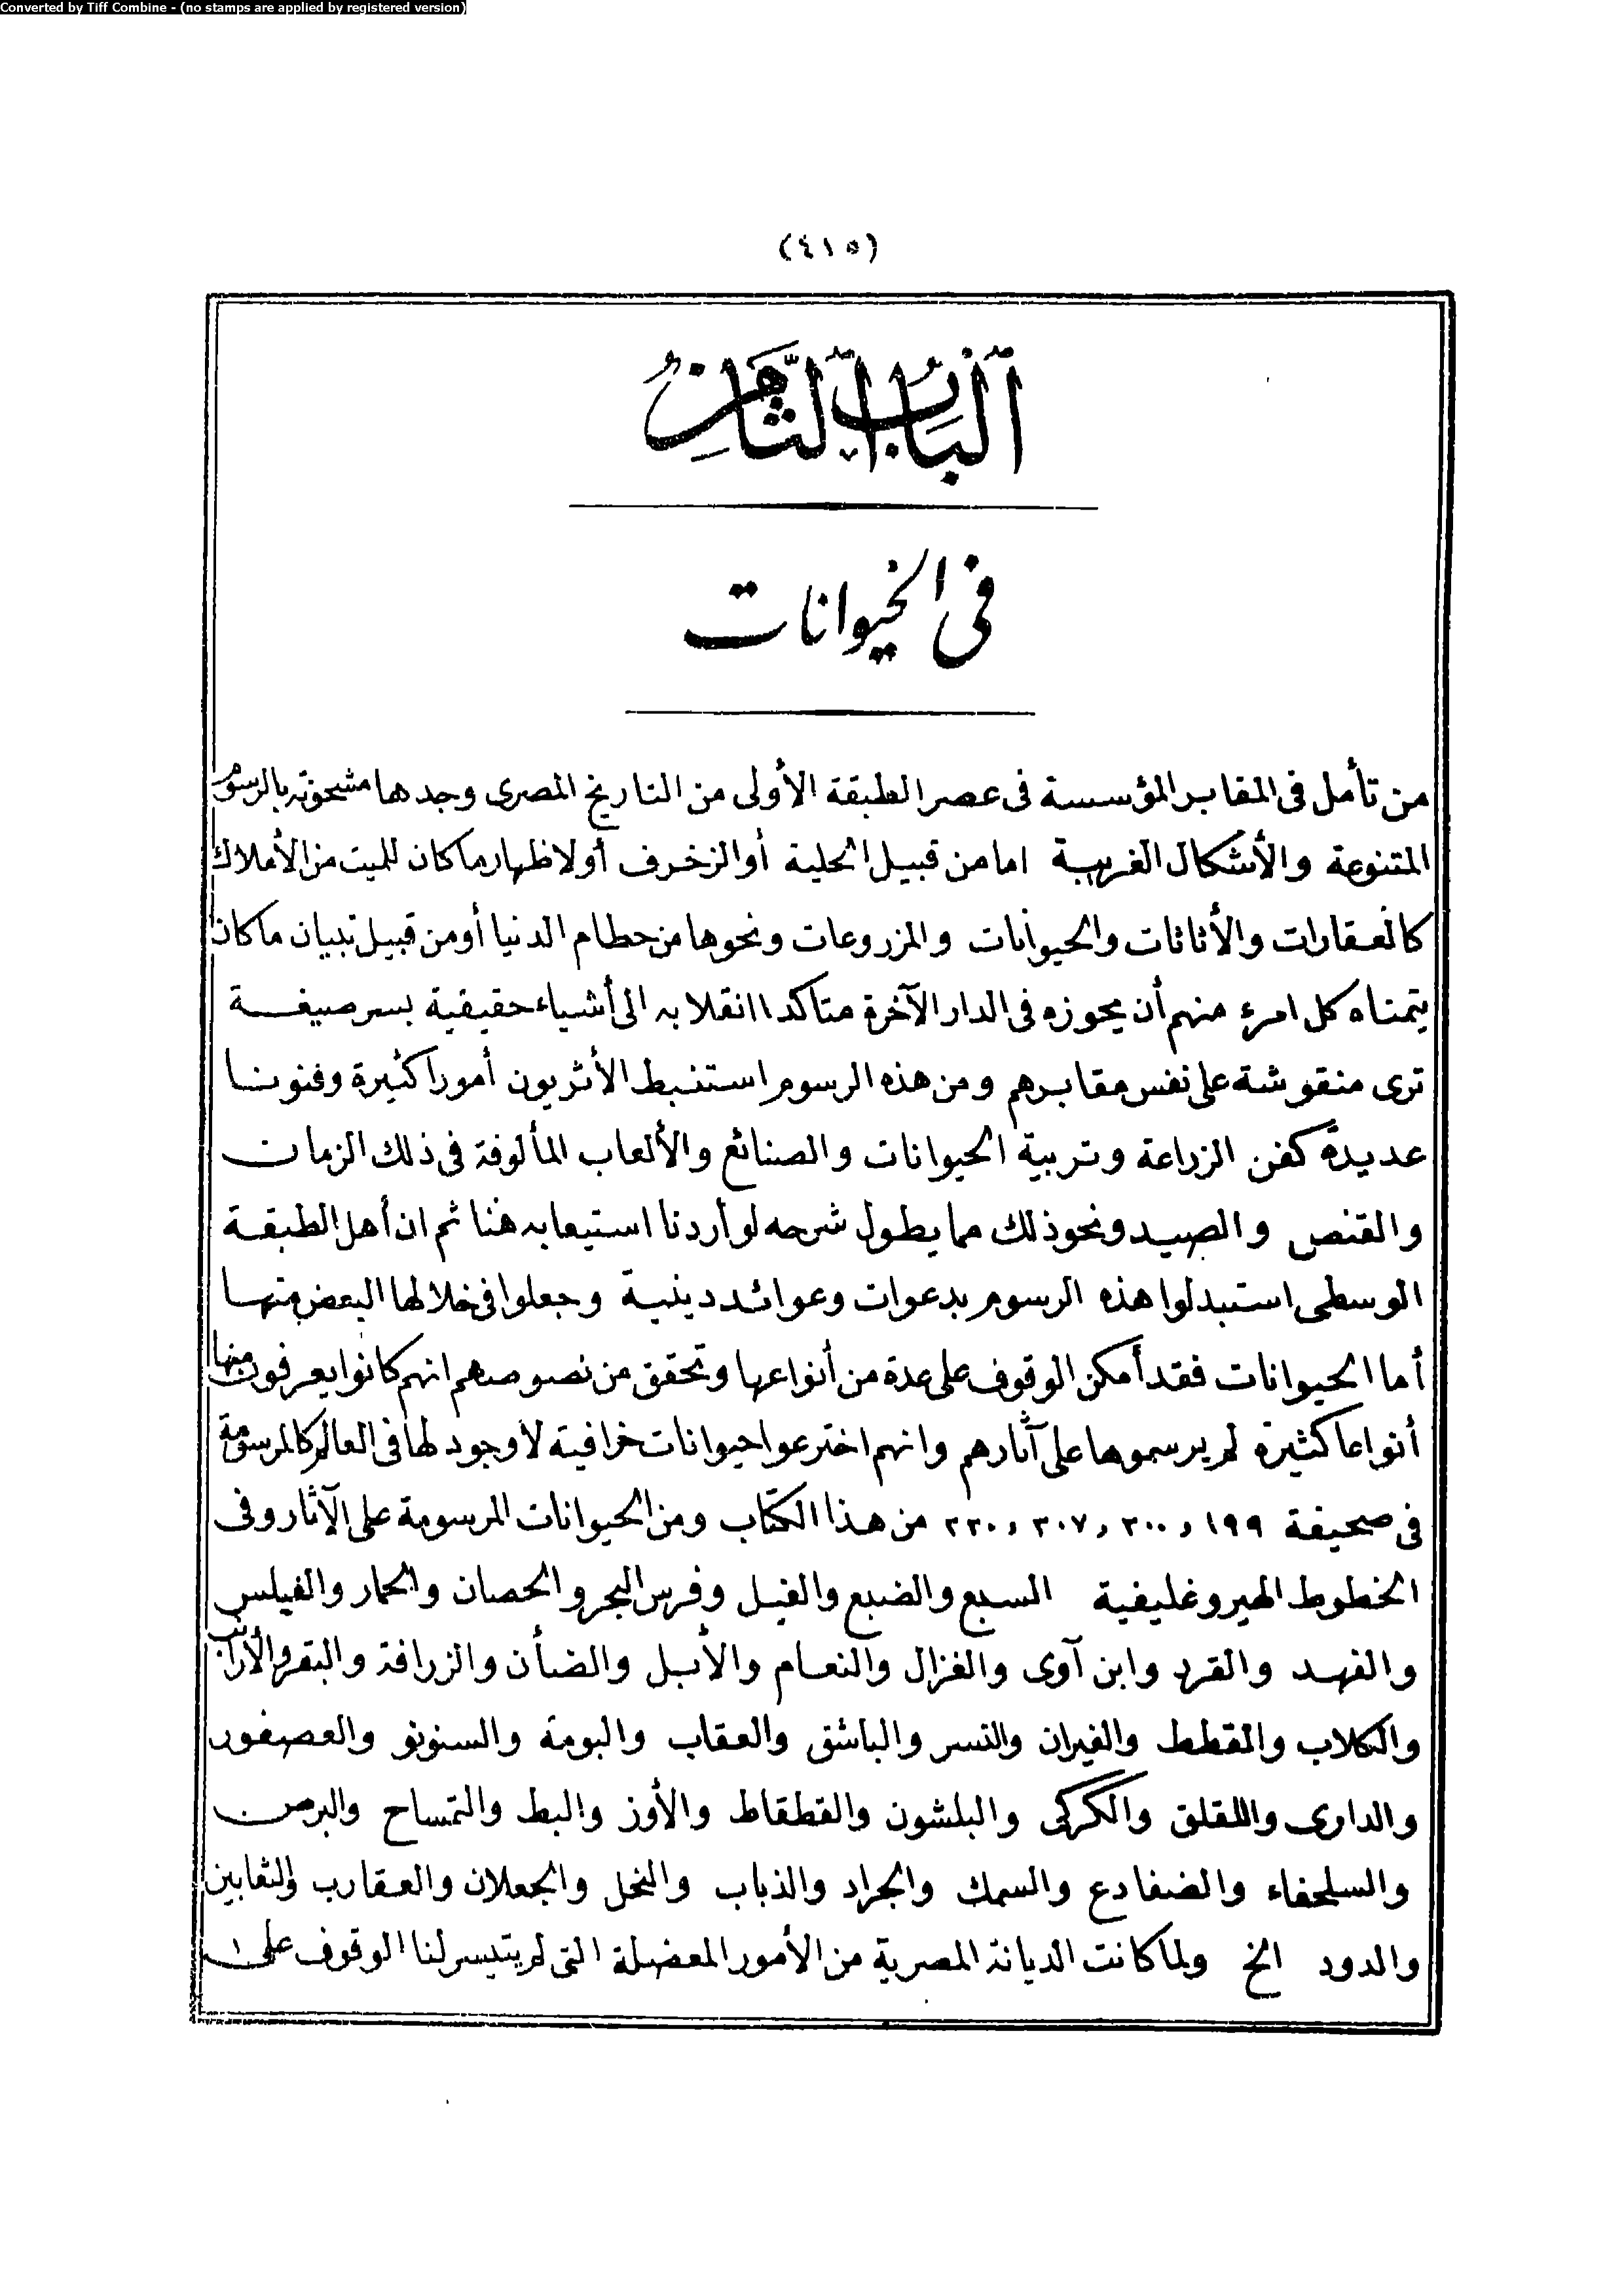 Converted by Tiff Combine - (no stamps are applied by registered version)
(٤١٥)
الباب الثامن
فى الحيوانات
من تأمل فى المقابر المؤسسة فى عصر الطبقة الأولى من التاريخ المصرى وجدها مشحونة بالرسوم
المتنوعة والأشكال الغريبة اما من قبيل الحلية أو الزخرف أو لاظهار ما كان للميت من الأملاك
كالعقارات والأثاثات والحيوانات والمزروعات ونحوها من حطام الدنيا أو من قبيل تبيان ما كان
يتمناه كل امرئ منهم أن يحوزه فى الدار الآخرة متاكدا انقلابه الى أشياء حقيقية بسر صيغة
ترى منقوشة على نفس مقابرهم ومن هذه الرسوم استنبط الأثريون أمورا كثيرة وفنونا
عديدة كفن الزراعة وتربية الحيوانات والصنائع والألعاب المألوفة فى ذلك الزمان
والقنص والصيد ونحو ذلك مما يطول شرحه لو أردنا استيعابه هنا ثم ان أهل الطبقة
الوسطى استبدلوا هذه الرسوم بدعوات وعوائد دينية وجعلوا فى خلالها البعض منها
أما الحيوانات فقد أمكن الوقوف على عدة من أنواعها وتحقق من نصوصهم انهم كانوا يعرفون منها
أنواعا كثيرة لم يرسموها على آثارهم وانهم اخترعوا حيوانات خرافية لا وجود لها فى العالم كالمرسومة
فى صحيفة ١٩٩ و٢٠٠ و٢٠٧ و٢٢٠ من هذا الكتاب ومن الحيوانات المرسومة على الآثار وفى
الخطوط الهيروغليفية السبع والضبع والفيل وفرس البحر والحصان والحمار والفيلس
والفهد والقرد وابن آوى والغزال والنعام والأبل والضأن والزرافة والبقر والأرانب
والكلاب والقطط والفيران والنسر والباشق والعقاب والبومة والسنونو والعصفور
والدارى واللقلق والكركى والبلشون والقطقاط والأوز والبط والتمساح والبرص
والسلحفاء والضفادع والسمك والجراد والذباب والنحل والجعلان والعقارب والثعابين
والدود الخ ولما كانت الديانة المصرية من الأمور المعضلة التى لم يتيسر لنا الوقوف على